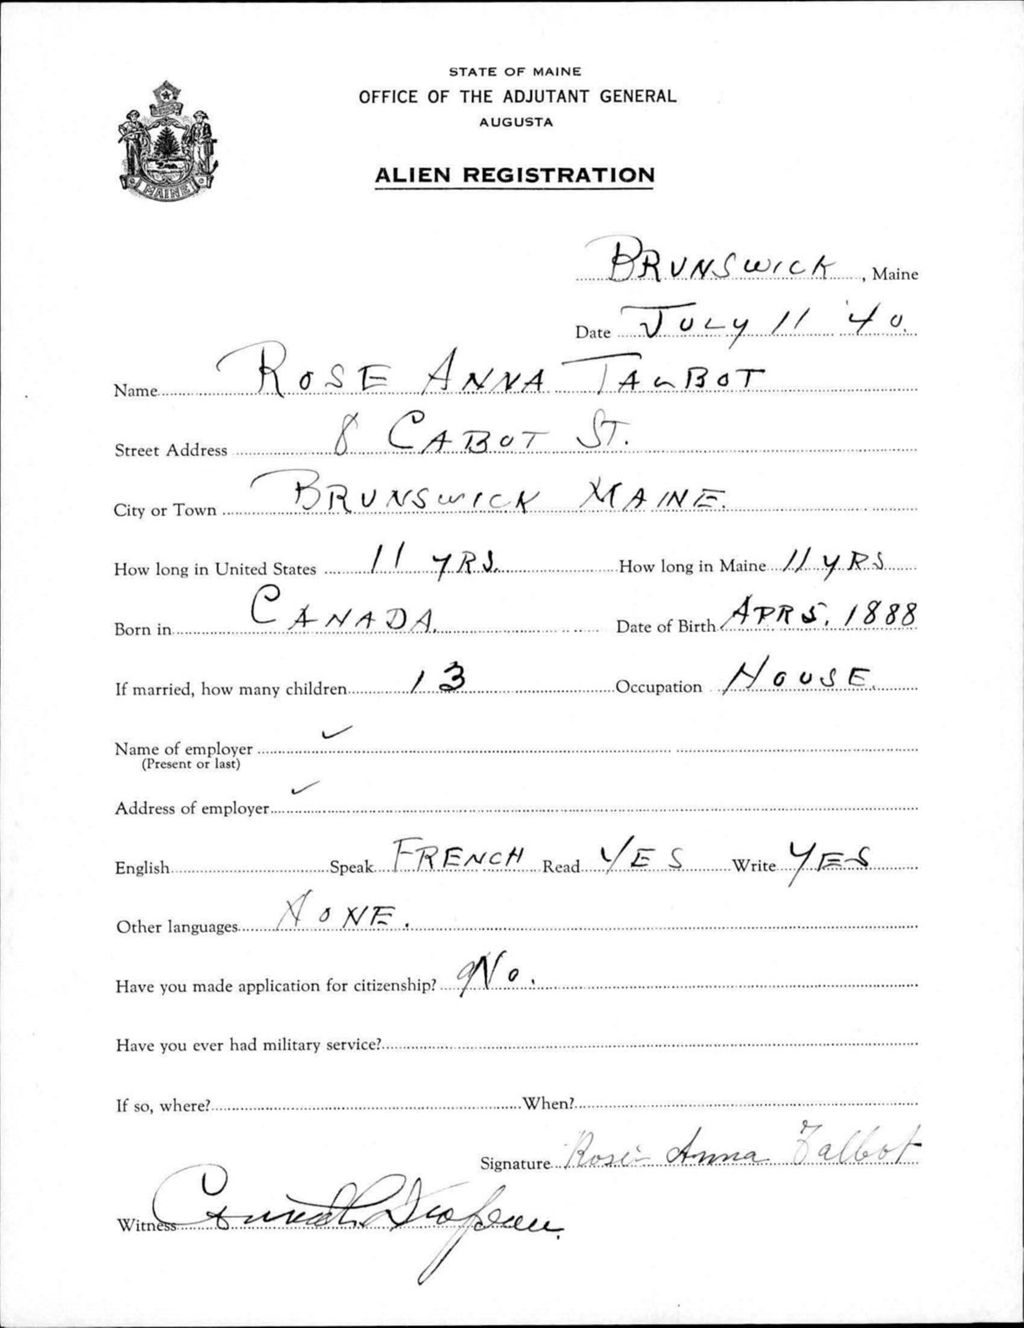 STATE OF MAINE
OFFICE OF THE ADJUTANT GENERAL
AUGUSTA
ALIEN REGISTRATION
MAINE
BRUNSWICK, Maine
Date JULY 11 '40.
Name ROSE ANNA TALBOT
Street Address 8 CABOT ST.
City or Town BRUNSWICK MAINE.
How long in United States 11 YRS. How long in Maine 11 YRS
Born in CANADA. Date of Birth APR 5, 1888
If married, how many children 13 Occupation HOUSE.
Name of employer ✓
(Present or last)
Address of employer ✓
English Speak FRENCH Read YES Write YES
Other languages NONE.
Have you made application for citizenship? No.
Have you ever had military service?
If so, where? When?
Signature Rose Anna Talbot
Witness